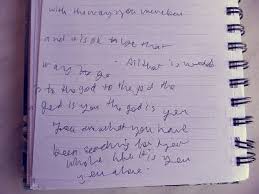 with the way you
and it's ok to be that
way
All that is needed
is to the god to the god the
god is you the god is you
You are what you have
been searching for your
whole life it is you
you alone.